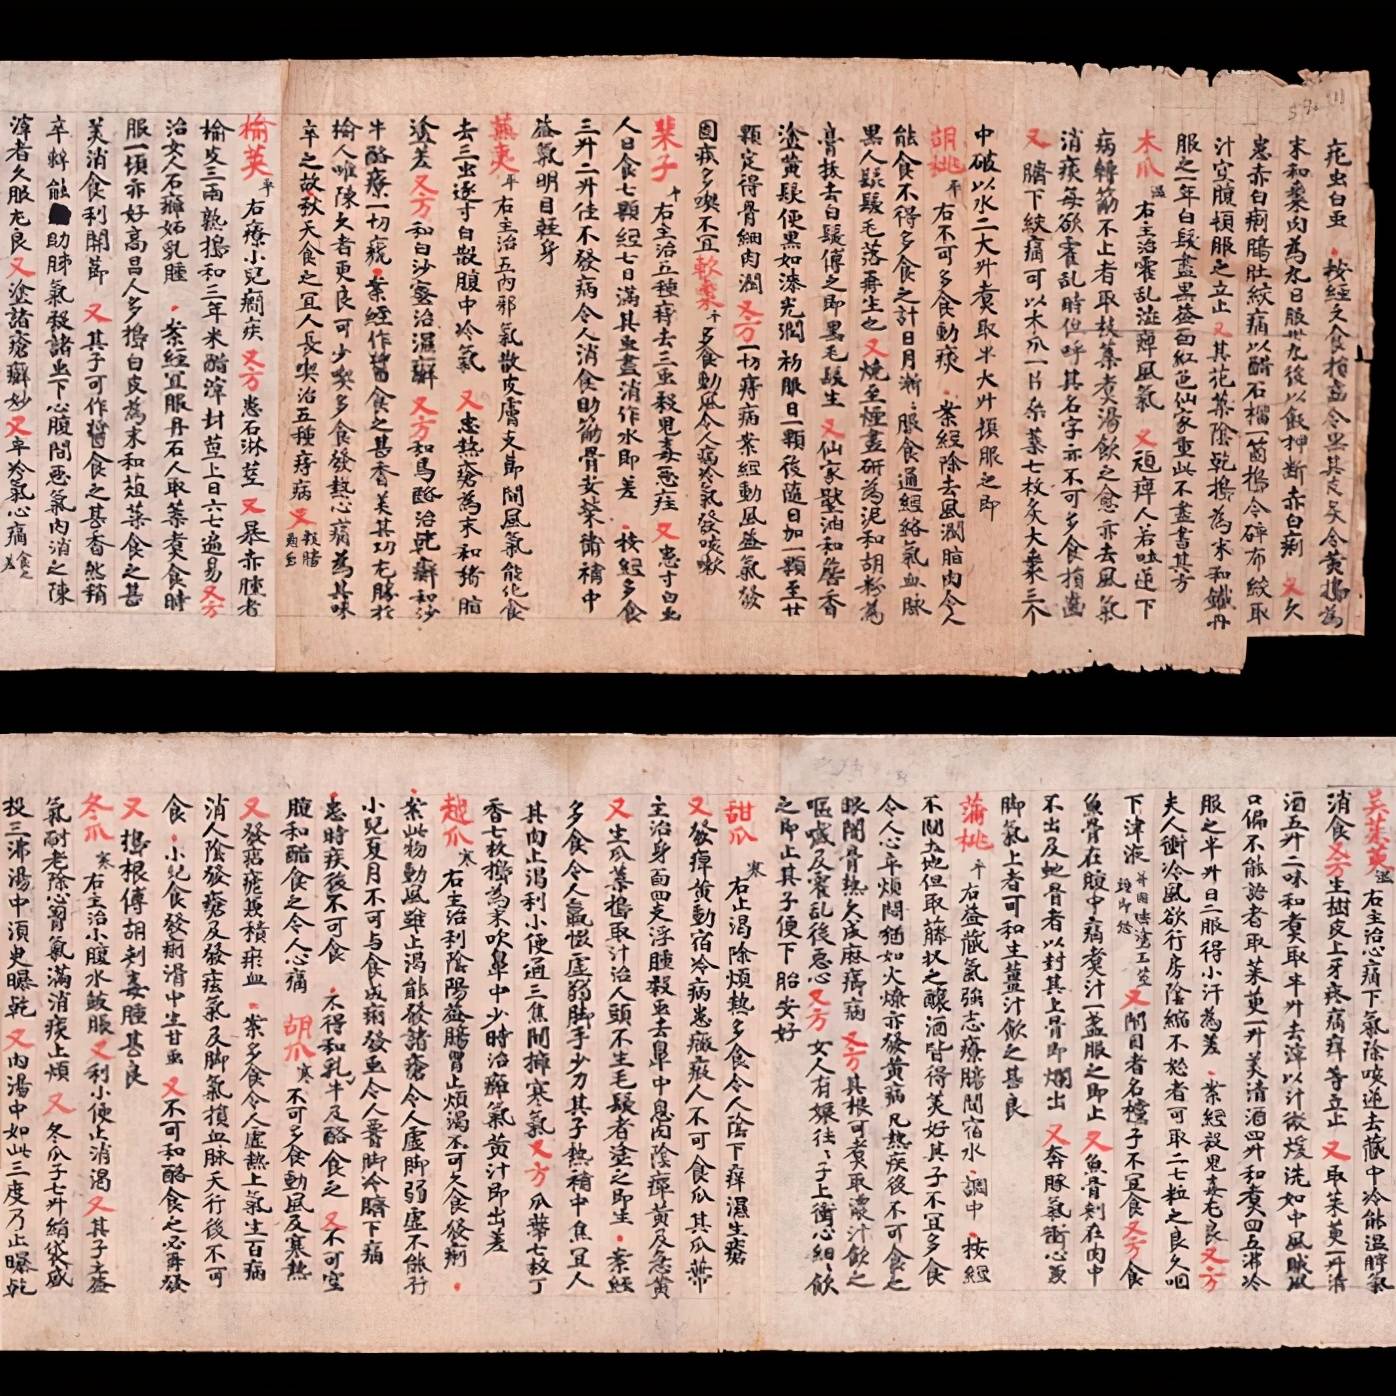 疕虫白虫 按經文食損齒令黑其皮炙令黄搗為
末和棗肉為丸日服卅丸後以飯押斷赤白痢 又久
患赤白痢腸肚絞痛以醋石榴一箇搗令碎布絞取
汁空腹頓服之立止 又其花葉陰乾搗為末和鐵丹
服之一年白髮盡黑益面紅色仙家重此不盡書其方
木爪 温 右主治霍乱澁痺風氣 又頑痺人若吐逆下
病轉筋不止者取枝葉煮湯飲之愈亦去風氣
消痰每欲霍乱時但呼其名字亦不可多食損齒
又 臍下絞痛可以木爪一片桑葉七枚炙大棗三个
中破以水二大升煮取半大升頓服之即
胡桃 平 右不可多食動痰 案經除去風潤脂肉令人
能食不得多食之計日月漸漸服食通經絡氣血脉
黑人髭髮毛落再生之 又燒至煙盡研為泥和胡粉為
膏拔去白髮傅之即黑毛髮生 又仙家壓油和詹香
塗黄髮便黑如漆光潤初服日一顆後隨日加一顆至廿
顆定得骨細肉潤 又方一切痔病案經動風益氣發
固疾多喫不宜軟棗 平 多食動風令人病冷氣發咳嗽
榧子 平 右主治五種痔去三虫殺鬼毒惡疰 又患寸白虫
人日食七顆經七日滿其虫盡消作水即差 按經多食
三升二升佳不發病令人消食助筋骨安榮衛補中
益氣明目輕身
蕪荑 平 右主治五内邪氣散皮膚支節間風氣能化食
去三虫逐寸白散腹中冷氣 又患熱瘡為末和猪脂
塗差 又方和白沙蜜治濕癬 又方和馬酪治乾癬和沙
牛酪療一切瘡 案經作醬食之甚香美其功尤勝於
榆人唯陳久者更良可少喫多食發熱心痛為其味
辛之故秋天食之宜人長喫治五種痔病 又殺腸惡虫
榆莢 平 右療小兒癇疾 又方患石淋莖 又暴赤腫者
榆皮三兩熟搗和三年米醋滓封莖上日六七遍易 又方
治女人石癰妬乳腫 案經宜服丹石人取葉煮食時
服一頓亦好高昌人多搗白皮為末和菹菜食之甚
美消食利關節 又其子可作醬食之甚香然稍
辛辣能助肺氣殺諸虫下心腹間惡氣内消之陳
滓者久服尤良 又塗諸瘡癬妙 又卒冷氣心痛食之差
吳茱萸 温 右主治心痛下氣除咳逆去藏中冷能温脾氣
消食 又方生樹皮上牙疼痛痒等立止 又取茱萸一升清
酒五升二味和煮取半升去滓以汁微煖洗如中風賊風
口偏不能語者取茱萸一升美清酒四升和煮四五沸冷
服之半升日二服得小汗為差 案經殺鬼毒尤良 又方
夫人衝冷風欲行房陰縮不怒者可取二七粒之良久咽
下津液并用唾塗玉莖頭即怒 又閉目者名欓子不宜食 又方食
魚骨在腹中痛煮汁一盞服之即止 又魚骨刺在肉中
不出及虵骨者以封其上骨即爛出 又奔豚氣衝心兼
脚氣上者可和生薑汁飲之甚良
蒲桃 平 右益藏氣強志療腸間宿水調中 按經
不問土地但取藤收之釀酒皆得美好其子不宜多食
令人心卒煩悶猶如火燎亦發黄病凡熱疾後不可食之
眼闇骨熱久成麻癤病 又方其根可煮取濃汁飲之
嘔噦及霍乱後惡心 又方女人有娠往往子上衝心細細飲
之即止其子便下胎安好
甜瓜 寒 右止渴除煩熱多食令人陰下痒濕生瘡
又發癉黄動宿冷病患癥瘕人不可食瓜其瓜蔕
主治身面四支浮腫殺虫去鼻中息肉陰癉黄及急黄
又生瓜葉搗取汁治人頭不生毛髮者塗之即生 案經
多食令人羸惙虚弱脚手少力其子熱補中焦宜人
其肉止渴利小便通三焦間擁塞氣 又方瓜蔕七枚丁
香七枚搗為末吹鼻中少時治癰氣黄汁即出差
越瓜 寒 右主治利陰陽益腸胃止煩渴不可久食發痢
案此物動風雖止渴能發諸瘡令人虚脚弱虚不能行
小兒夏月不可与食成痢發虫令人腰脚冷臍下痛
患時疾後不可食 不得和乳牛及酪食之 又不可空
腹和醋食之令人心痛 胡瓜 寒 不可多食動風及寒熱
又發痁瘧兼積瘀血 案多食令人虚熱上氣生百病
消人陰發瘡及發疰氣及脚氣損血脉天行後不可
食 小兒食發痢滑中生甘虫 又不可和酪食之必再發
又 搗根傅胡刺毒腫甚良
冬瓜 寒 右主治小腹水皷脹 又利小便止消渴 又其子主益
氣耐老除心胷氣滿消痰止煩 又冬瓜子七升絹袋盛
投三沸湯中須臾曝乾 又内湯中如此三度乃止曝乾